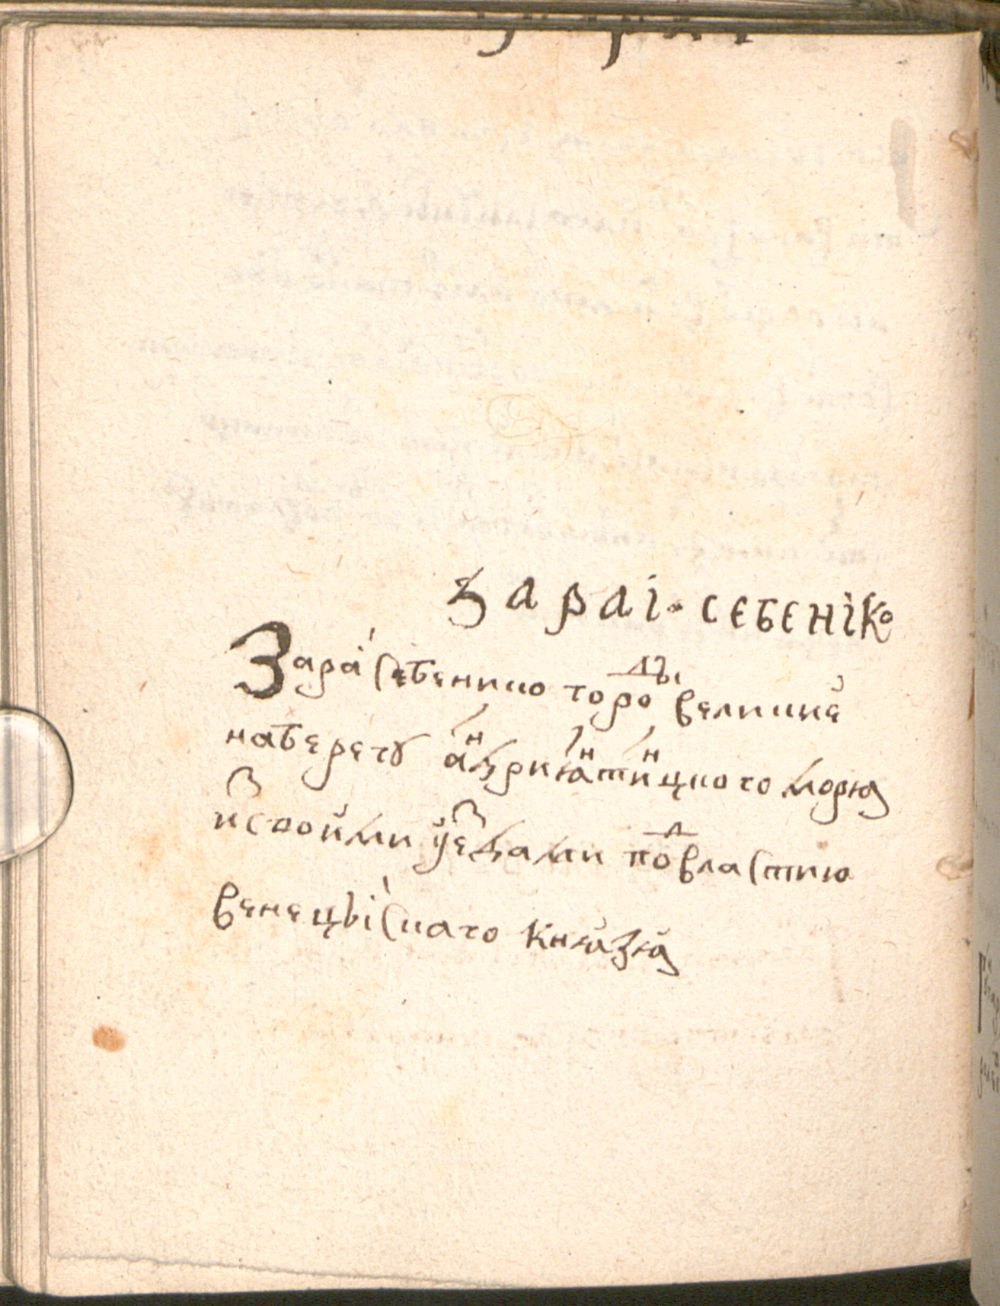 ЗАРАІ·СЕБЕНІКО
Зараї Себенико городы великиє
набєрєгу андриятинцкого моря
исвоими уездами подвластию
вєнєцыіскаго князя